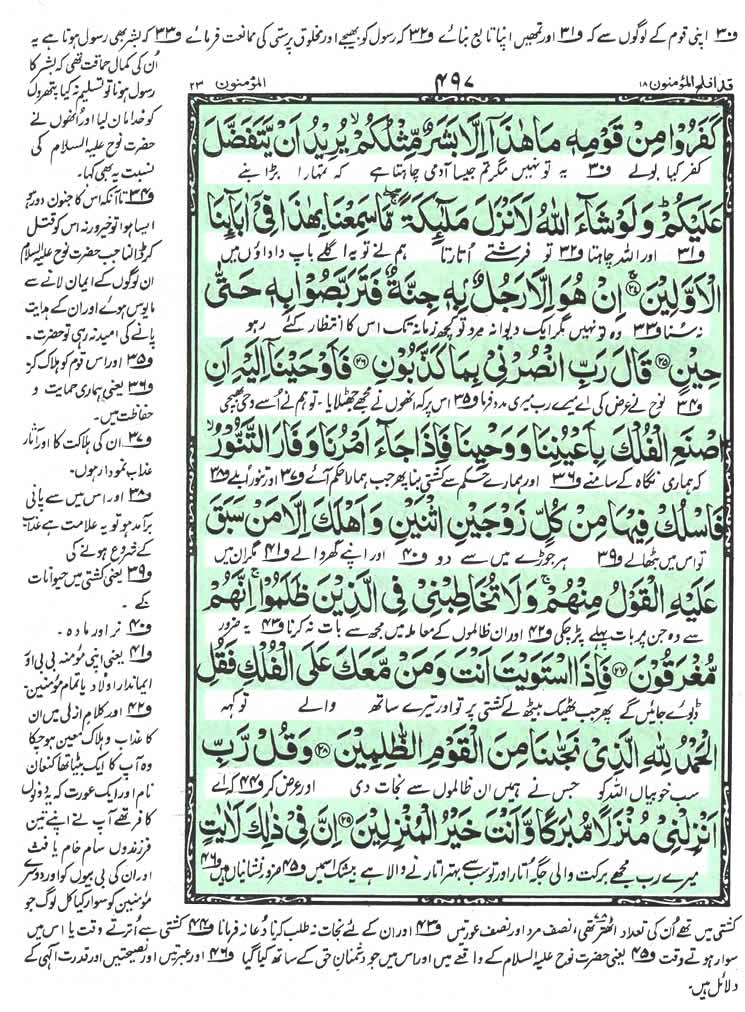 ف۳۰ اپنی قوم کے لوگوں سے کہ ف۳۱ اور تمھیں اپنا تابع بنائے ف۳۲ کہ رسول کو بھیجے اور مخلوق پرستی کی ممانعت فرمائے ف۳۳ کہ بشر بھی رسول ہوتا ہے یہ
قد افلح المؤمنون ۱۸
۴۹۷
المؤمنون ۲۳
كَفَرُوْا مِنْ قَوْمِهٖ مَا هٰذَاۤ اِلَّا بَشَرٌ مِّثْلُكُمْ ۙ یُرِیْدُ اَنْ یَّتَفَضَّلَ
کفر کیا بولے ف۳۰ یہ تو نہیں مگر تم جیسا آدمی چاہتا ہے کہ تمہارا بڑا بنے
عَلَیْكُمْ ؕ وَ لَوْ شَآءَ اللّٰهُ لَاَنْزَلَ مَلٰٓىِٕكَةً ۚۖ مَّا سَمِعْنَا بِهٰذَا فِیْۤ اٰبَآىِٕنَا
ف۳۱ اور اللہ چاہتا ف۳۲ تو فرشتے اُتارتا ہم نے تو یہ اگلے باپ داداؤں میں
الْاَوَّلِیْنَ ۚ﴿۲۴﴾ اِنْ هُوَ اِلَّا رَجُلٌۢ بِهٖ جِنَّةٌ فَتَرَبَّصُوْا بِهٖ حَتّٰی
نہ سُنا ف۳۳ وہ تو نہیں مگر ایک دیوانہ مرد تو کچھ زمانہ تک اس کا انتظار کئے رہو
حِیْنٍ ﴿۲۵﴾ قَالَ رَبِّ انْصُرْنِیْ بِمَا كَذَّبُوْنِ ﴿۲۶﴾ فَاَوْحَیْنَاۤ اِلَیْهِ اَنِ
ف۳۴ نوح نے عرض کی اے میرے رب میری مدد فرما ف۳۵ اس پر کہ انھوں نے مجھے جھٹلایا ۔ تو ہم نے اُسے وحی بھیجی
اصْنَعِ الْفُلْكَ بِاَعْیُنِنَا وَ وَحْیِنَا فَاِذَا جَآءَ اَمْرُنَا وَ فَارَ التَّنُّوْرُ ۙ
کہ ہماری نگاہ کے سامنے ف۳۶ اور ہمارے حکم سے کشتی بنا پھر جب ہمارا حکم آئے ف۳۷ اور تنور اُبلے ف۳۸
فَاسْلُكْ فِیْهَا مِنْ كُلٍّ زَوْجَیْنِ اثْنَیْنِ وَ اَهْلَكَ اِلَّا مَنْ سَبَقَ
تو اس میں بٹھالے ف۳۹ ہر جوڑے میں سے دو ف۴۰ اور اپنے گھر والے ف۴۱ مگر ان میں
عَلَیْهِ الْقَوْلُ مِنْهُمْ ۚ وَ لَا تُخَاطِبْنِیْ فِی الَّذِیْنَ ظَلَمُوْا ۚ اِنَّهُمْ
سے وہ جن پر بات پہلے پڑ چکی ف۴۲ اور ان ظالموں کے معاملہ میں مجھ سے بات نہ کرنا ف۴۳ یہ ضرور
مُّغْرَقُوْنَ ﴿۲۷﴾ فَاِذَا اسْتَوَیْتَ اَنْتَ وَ مَنْ مَّعَكَ عَلَی الْفُلْكِ فَقُلِ
ڈبوئے جائیں گے پھر جب ٹھیک بیٹھ لے کشتی پر تو اور تیرے ساتھ والے تو کہہ
الْحَمْدُ لِلّٰهِ الَّذِیْ نَجّٰىنَا مِنَ الْقَوْمِ الظّٰلِمِیْنَ ﴿۲۸﴾ وَ قُلْ رَّبِّ
سب خوبیاں اللہ کو جس نے ہمیں ان ظالموں سے نجات دی اور عرض کر ف۴۴ کہ اے
اَنْزِلْنِیْ مُنْزَلًا مُّبٰرَكًا وَّ اَنْتَ خَیْرُ الْمُنْزِلِیْنَ ﴿۲۹﴾ اِنَّ فِیْ ذٰلِكَ لَاٰیٰتٍ
میرے رب مجھے برکت والی جگہ اتار اور تو سب سے بہتر اتارنے والا ہے بیشک اسمیں ف۴۵ ضرور نشانیاں ہیں ف۴۶
اُن کی کمال حماقت تھی کہ بشر کا
رسول ہونا تو تسلیم نہ کیا پتھروں کو
کو خدا مان لیا اور انھوں نے
حضرت نوح علیہ السلام کی
نسبت یہ بھی کہا۔
ف۳۴ تاآنکہ اس کا جنون دور ہو
ایسا ہوا تو خیر ورنہ اس کو قتل
کر ڈالنا جب حضرت نوح علیہ السلام
ان لوگوں کے ایمان لانے سے
مایوس ہوئے اور ان کے ہدایت
پانے کی امید نہ رہی تو حضرت۔
ف۳۵ اور اس قوم کو ہلاک کر
ف۳۶ یعنی ہماری حمایت و
حفاظت میں۔
ف۳۷ ان کی ہلاکت کا اور آثار
عذاب نمودار ہوں۔
ف۳۸ اور اس میں سے پانی
برآمد ہو تو یہ علامت ہے عذاب
کے شروع ہونے کی
ف۳۹ یعنی کشتی میں حیوانات
کے ۔
ف۴۰ نر اور مادہ ۔
ف۴۱ یعنی اپنی مؤمنہ بی بی اور
ایماندار اولاد یا تمام مؤمنین۔
ف۴۲ اور کلام ازلی میں ان
کا عذاب و ہلاک معین ہو چکا
وہ آپ کا ایک بیٹا تھا کنعان
نام اور ایک عورت کہ یہ دونوں
کافر تھے آپ نے اپنے تین
فرزندوں سام حام یافث
اور ان کی بی بیوں کو اور دوسرے
مؤمنین کو سوار کیا کل لوگ جو
کشتی میں تھے اُن کی تعداد اٹھتر تھی، نصف مرد اور نصف عورتیں ف۴۳ اور ان کے لئے نجات نہ طلب کرنا دُعا نہ فرمانا ف۴۴ کشتی سے اُترتے وقت یا اس میں
سوار ہوتے وقت ف۴۵ یعنی حضرت نوح علیہ السلام کے واقعے میں اور اس میں جو دشمنانِ حق کے ساتھ کیا گیا ف۴۶ اور عبرتیں اور نصیحتیں اور قدرت الٰہی کے
دلائل ہیں۔